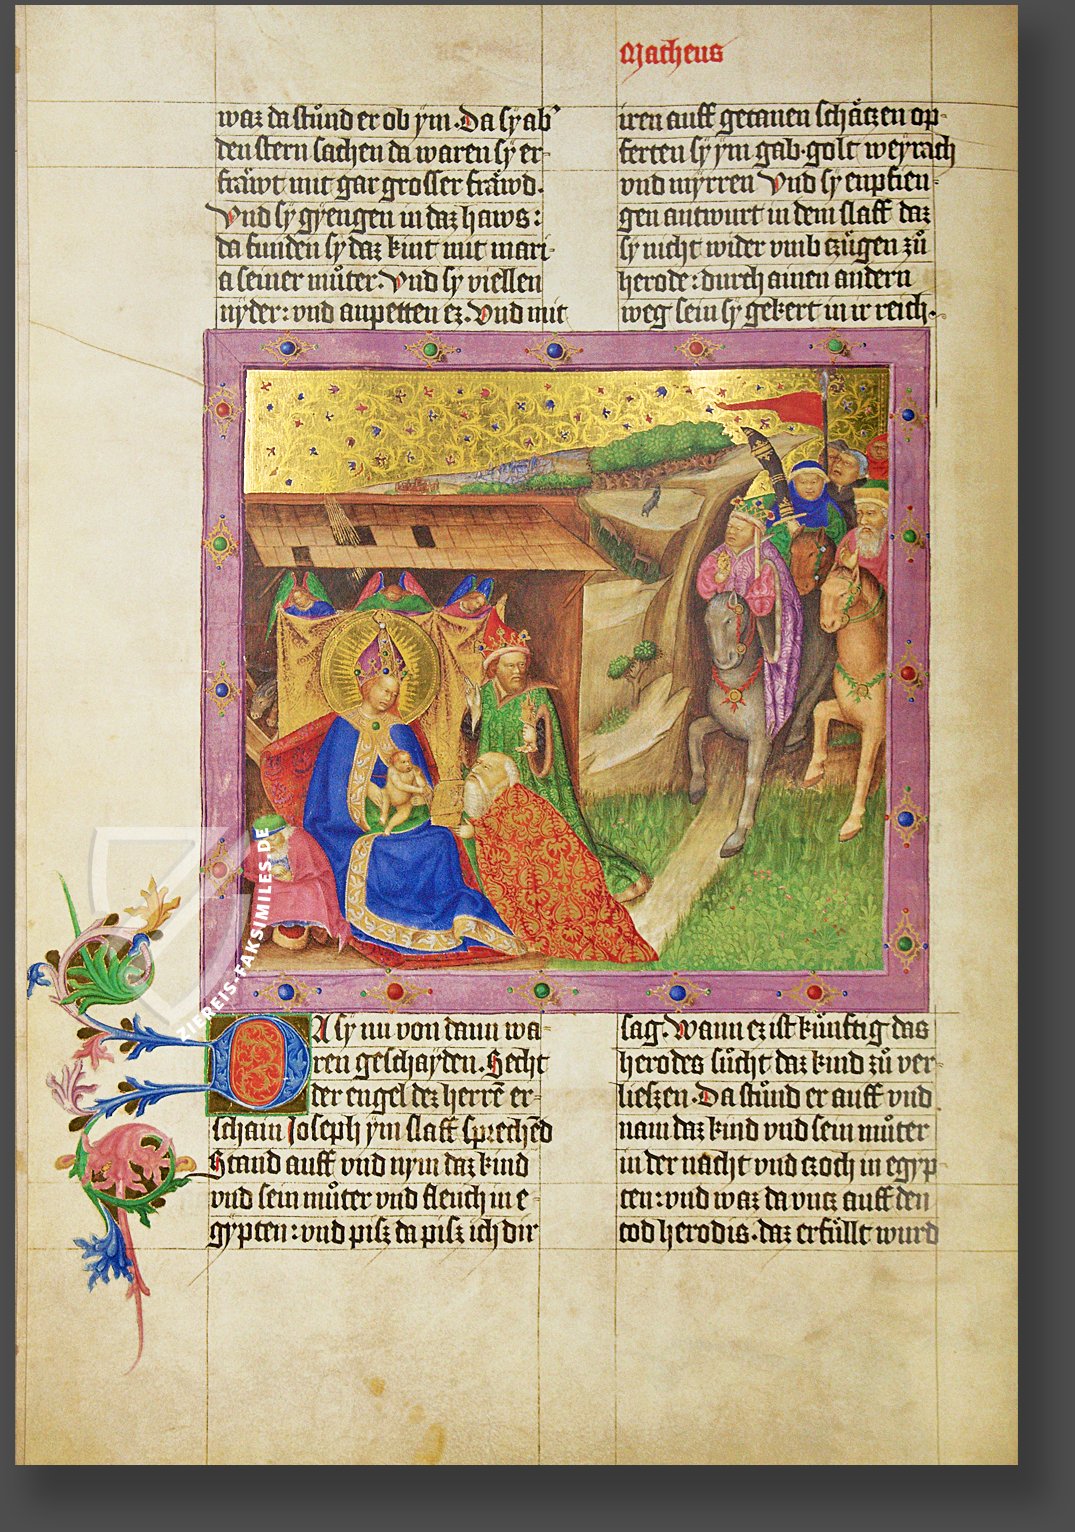 Matheus
waz da stůnd er ob ÿm. Da sÿ abˀ
den stern sachen da waren sÿ er-
fräwt mit gar grosser fräwd.
Vnd sÿ gÿengen in daz haws:
da funden sÿ daz kint mit mari-
a seiner můter. Vnd sÿ viellen
nÿder: vnd anpetten ez. Vnd mit
iren auff getanen schätzen op-
ferten sÿ ÿm gab. golt weÿrach
vnd mÿrren Vnd sÿ enpfien-
gen antwurt in dem slaff daz
sÿ nicht wider vmb tzügen zů
herode: durch ainen andern
weg sein sÿ gekert in ir reich.
DA sÿ nu von dann wa-
ren geschaÿden. Secht
der engel dez herrē er-
schain Joseph ÿm slaff sprechēd
Stand auff vnd nym daz kind
vnd sein můter vnd fleuch in e-
gÿpten: vnd pisz da pisz ich dir
sag. Wann ez ist künftig das
herodes sůcht daz kind zů ver-
lieszen. Da stůnd er auff vnd
nam daz kind vnd sein můter
in der nacht vnd tzoch in egyp-
ten: vnd waz da vntz auff den
tod herodis. daz erfüllt wurd
ZIEREIS-FAKSIMILES.DE